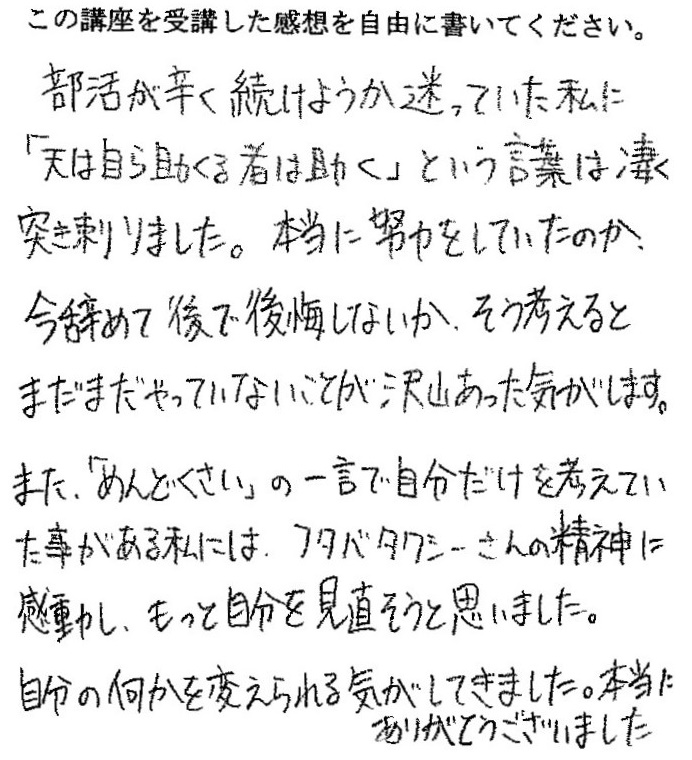 この講座を受講した感想を自由に書いてください。
部活が辛く続けようか迷っていた私に
「天は自ら助くる者は助く」という言葉は凄く
突き刺りました。本当に努力をしていたのか、
今辞めて後で後悔しないか、そう考えると
まだまだやっていないことが沢山あった気がします。
また、「めんどくさい」の一言で自分だけを考えてい
た事がある私には、フタバタクシーさんの精神に
感動し、もっと自分を見直そうと思いました。
自分の何かを変えられる気がしてきました。本当に
ありがとうございました